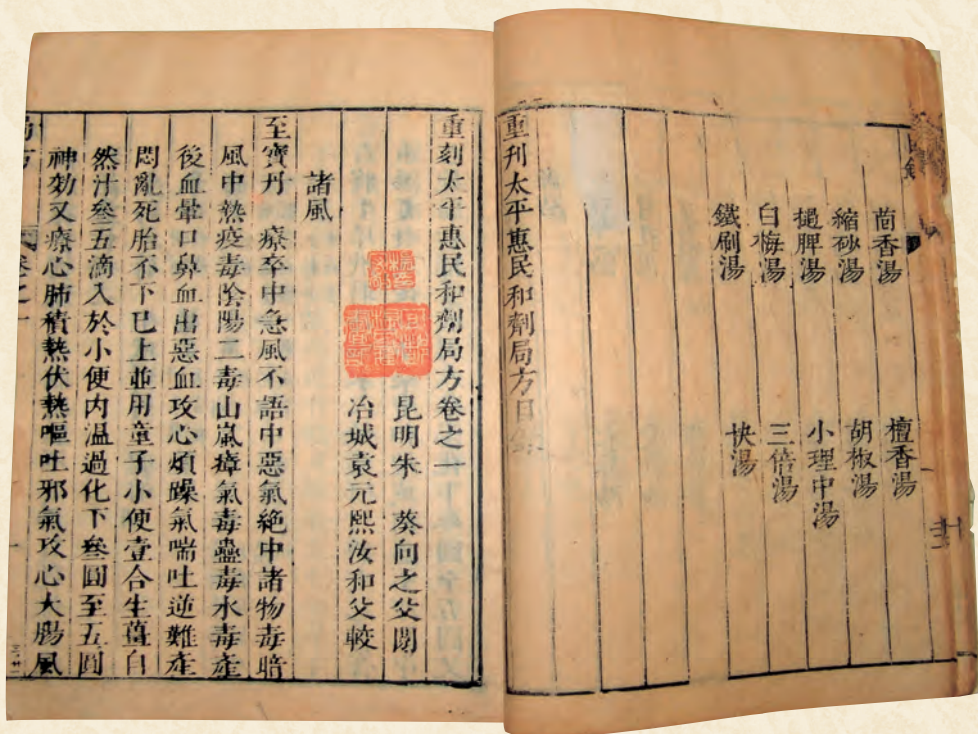 茴香湯
檀香湯
縮砂湯
胡椒湯
搥脾湯
小理中湯
白梅湯
三倍湯
鐵刷湯
快湯
重刊太平惠民和劑局方目錄
重刻太平惠民和劑局方卷之一
昆明朱 葵向之父閱
冶城袁元熙汝和父較
諸風
至寶丹 療卒中急風不語中惡氣絶中諸物毒暗
風中熱疫毒陰陽二毒山嵐瘴氣毒蠱毒水毒產
後血暈口鼻血出惡血攻心煩躁氣喘吐逆難產
悶亂死胎不下已上並用童子小便壹合生薑自
然汁叄五滴入於小便内温過化下叄圓至五圓
神効又療心肺積熱伏熱嘔吐邪氣攻心大腸風
卷之一